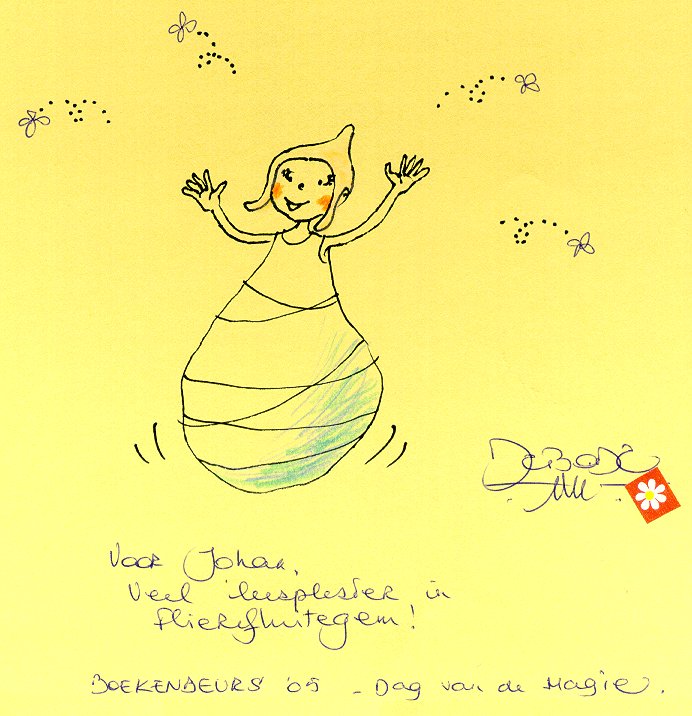 DeBode
Voor Johan,
Veel leesplezier in
Flierefluitegem!
BOEKENBEURS '05 - Dag van de Magie.